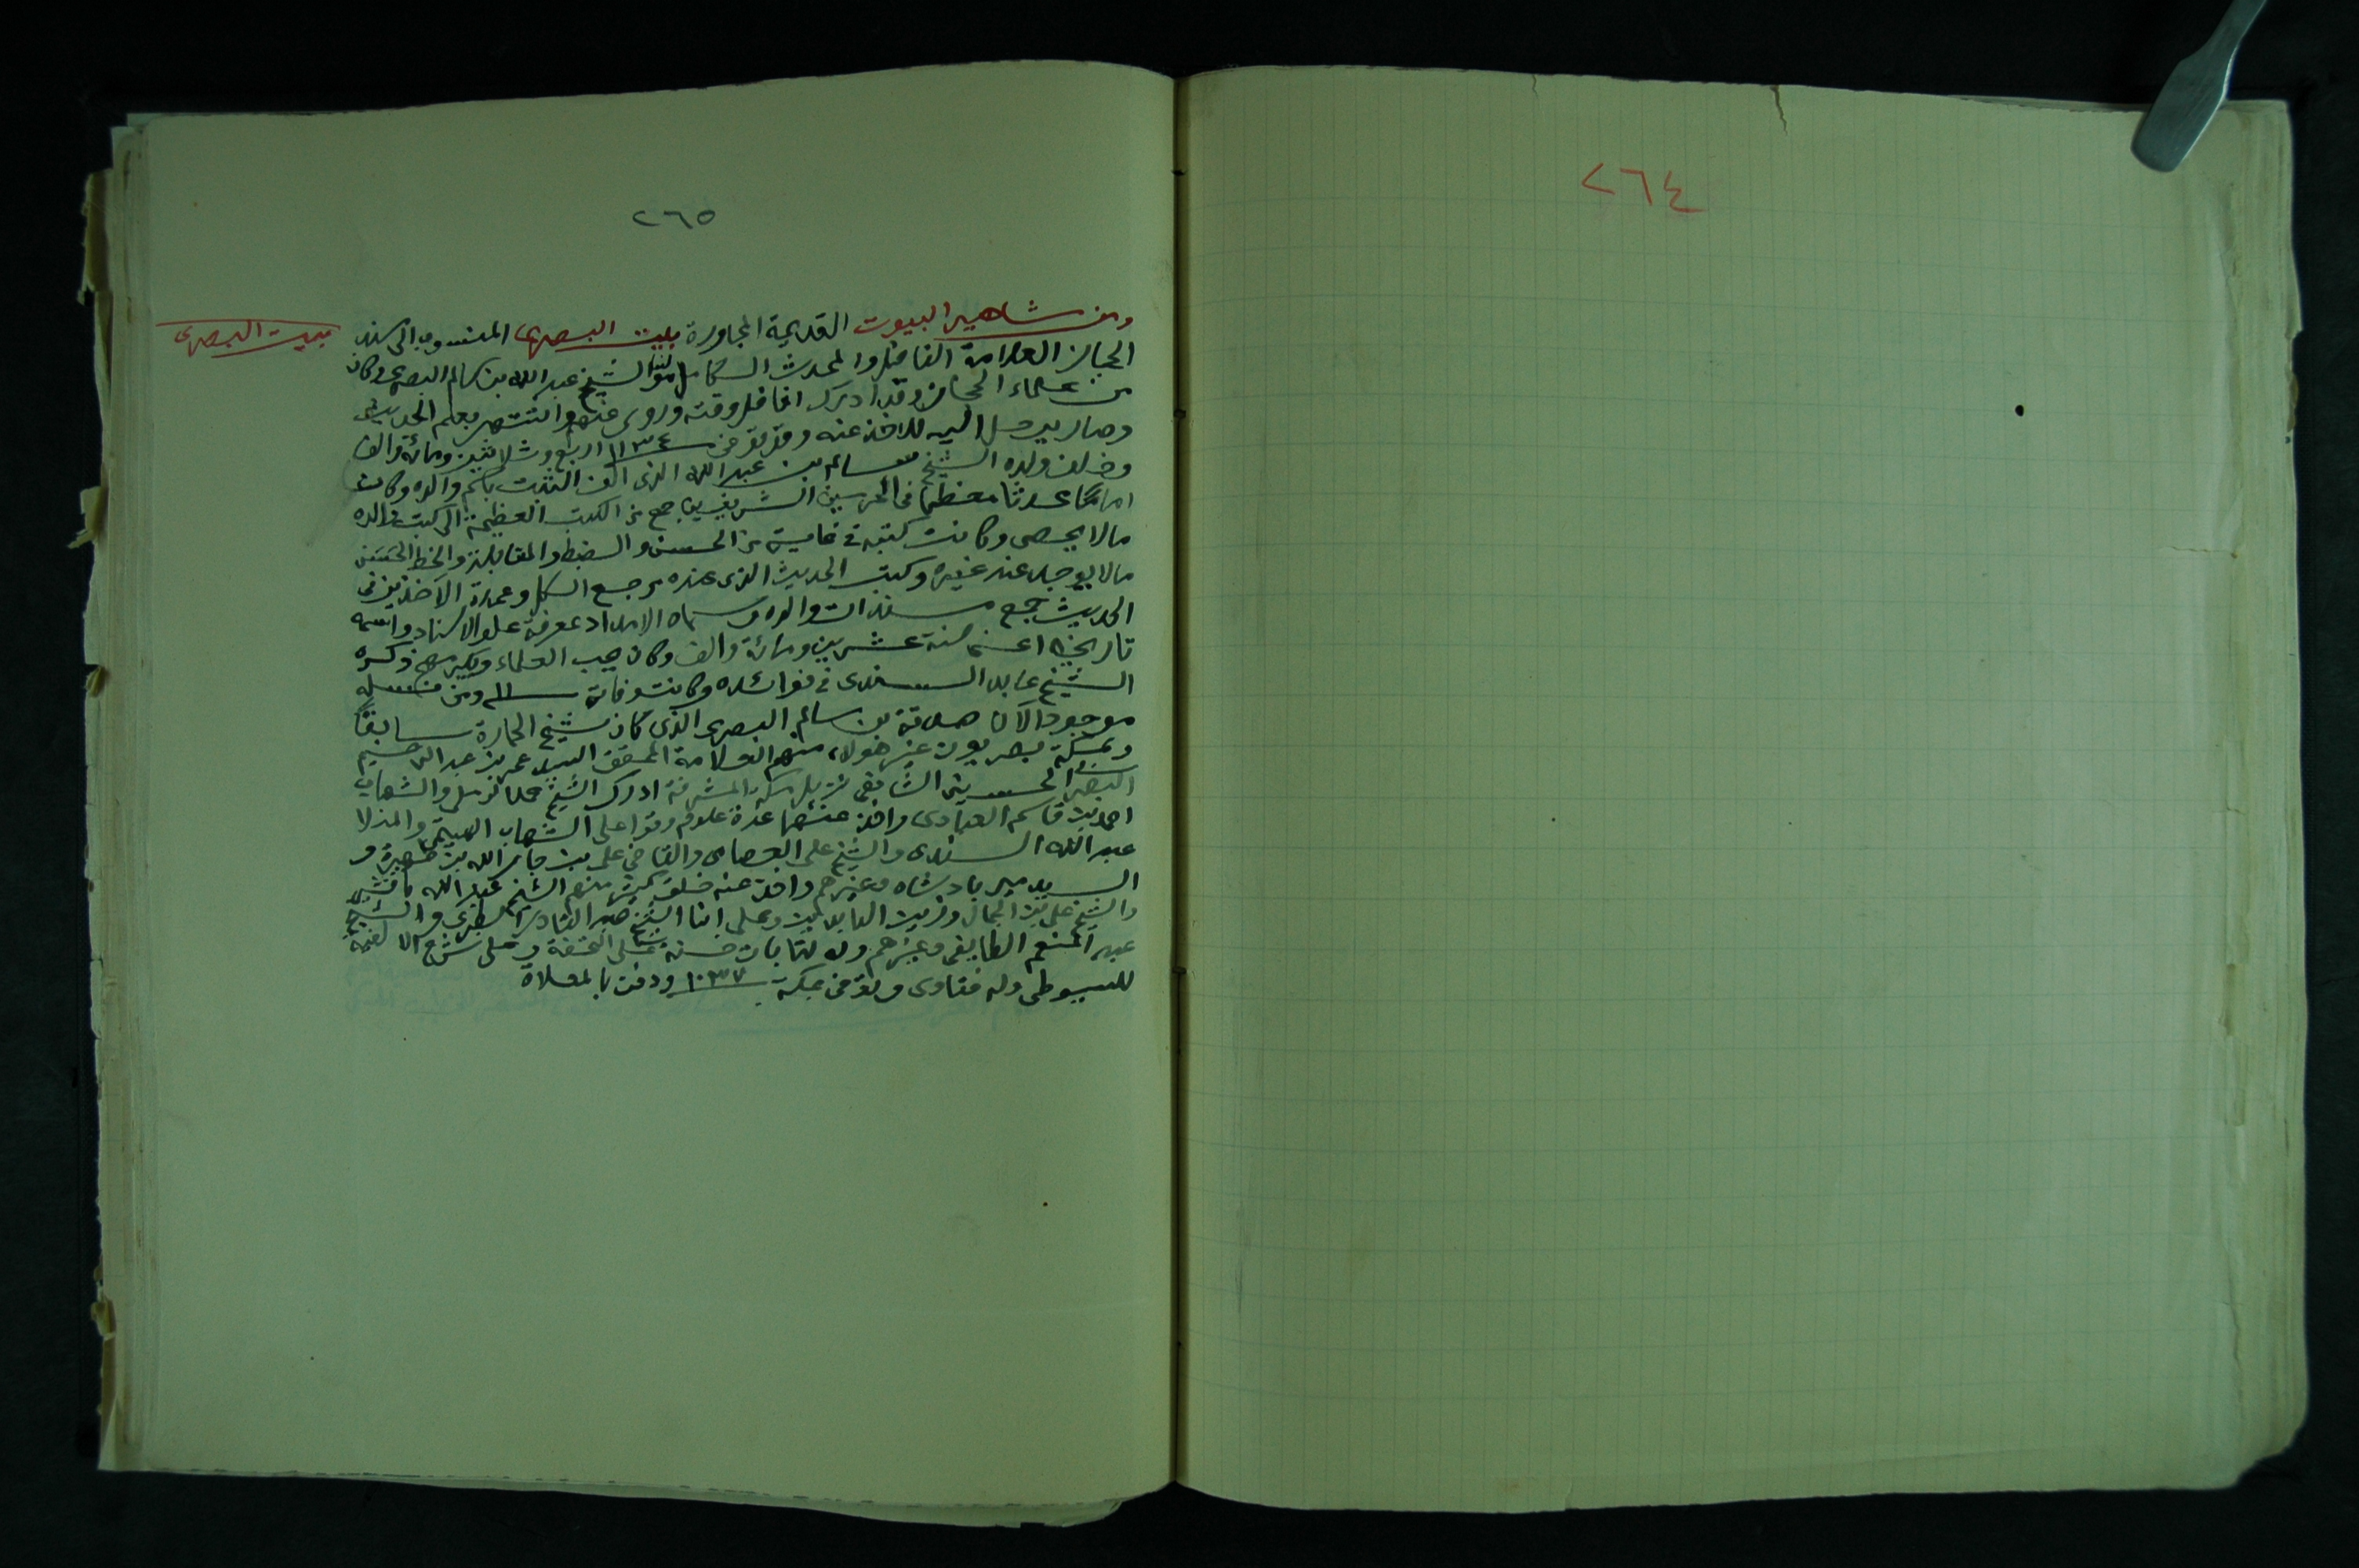 ٢٦٤
٢٦٥
بيت البصرى
ومن مشاهير البيوت القديمة المجاورة بيت البصرى المنسوب الى سند
الحجاز العلامة الفاضل والمحدث الكامل مولانا الشيخ عبد الله بن سالم البصرى وكان
من علماء الحجاز وقد ادرك افاضل وقته وروى عنهم واشتهر بعلم الحديث
وصار يرحل اليه للاخذ عنه وقد توفى سنة ١١٣٤ اربع وثلاثين ومائة والف
وخلف ولده الشيخ سالم بن عبد الله الذى الف الثبت باسم والده وكان
اماما محدثا معظما فى الحرمين الشريفين جمع من الكتب العظيمة الى كتب والده
مالا يحصى وكانت كتبه فى غاية من الحسن والضبط والمقابلة والخط الحسن
مالا يوجد عند غيره وكتب الحديث الذى عنده مرجع الكل وعمدة الآخذين فى
الحديث جمع مسندات والده وسماه الامداد بمعرفة علو الاسناد واسمه
تاريخه اعنى سنة عشرين ومائة والف وكان يحب العلماء ويكرمهم ذكره
الشيخ عابد السندى فى فوائده وكانت وفاته سنة ومن نسله
موجود الآن صدقة بن سالم البصرى الذى كان شيخ الحارة سابقا
وبمكة بصريون غير هؤلاء منهم العلامة المحقق السيد عمر بن عبد الرحيم
البصرى الحسينى الشافعى نزيل مكة المشرفة ادرك الشيخ محمد الرملى والشهاب
احمد بن قاسم العبادى واخذ عنهما عدة علوم وقرا على الشهاب الهيتمى والمنلا
عبد الله السندى والشيخ على العصامى والقاضى على بن جار الله بن ظهيرة و
السيد مير بادشاه وغيرهم واخذ عنه خلق كثير منهم الشيخ عبد الله باقشير
والشيخ على بن الجمال وزين العابدين وعلى ابنا الشيخ عبد القادر الطبرى والشيخ
عبد المنعم الطايفى وغيرهم وله كتابات حسنة على التحفة وعلى شرح الالفية
للسيوطى وله فتاوى وتوفى بمكة سنة ١٠٣٧ ودفن بالمعلاة